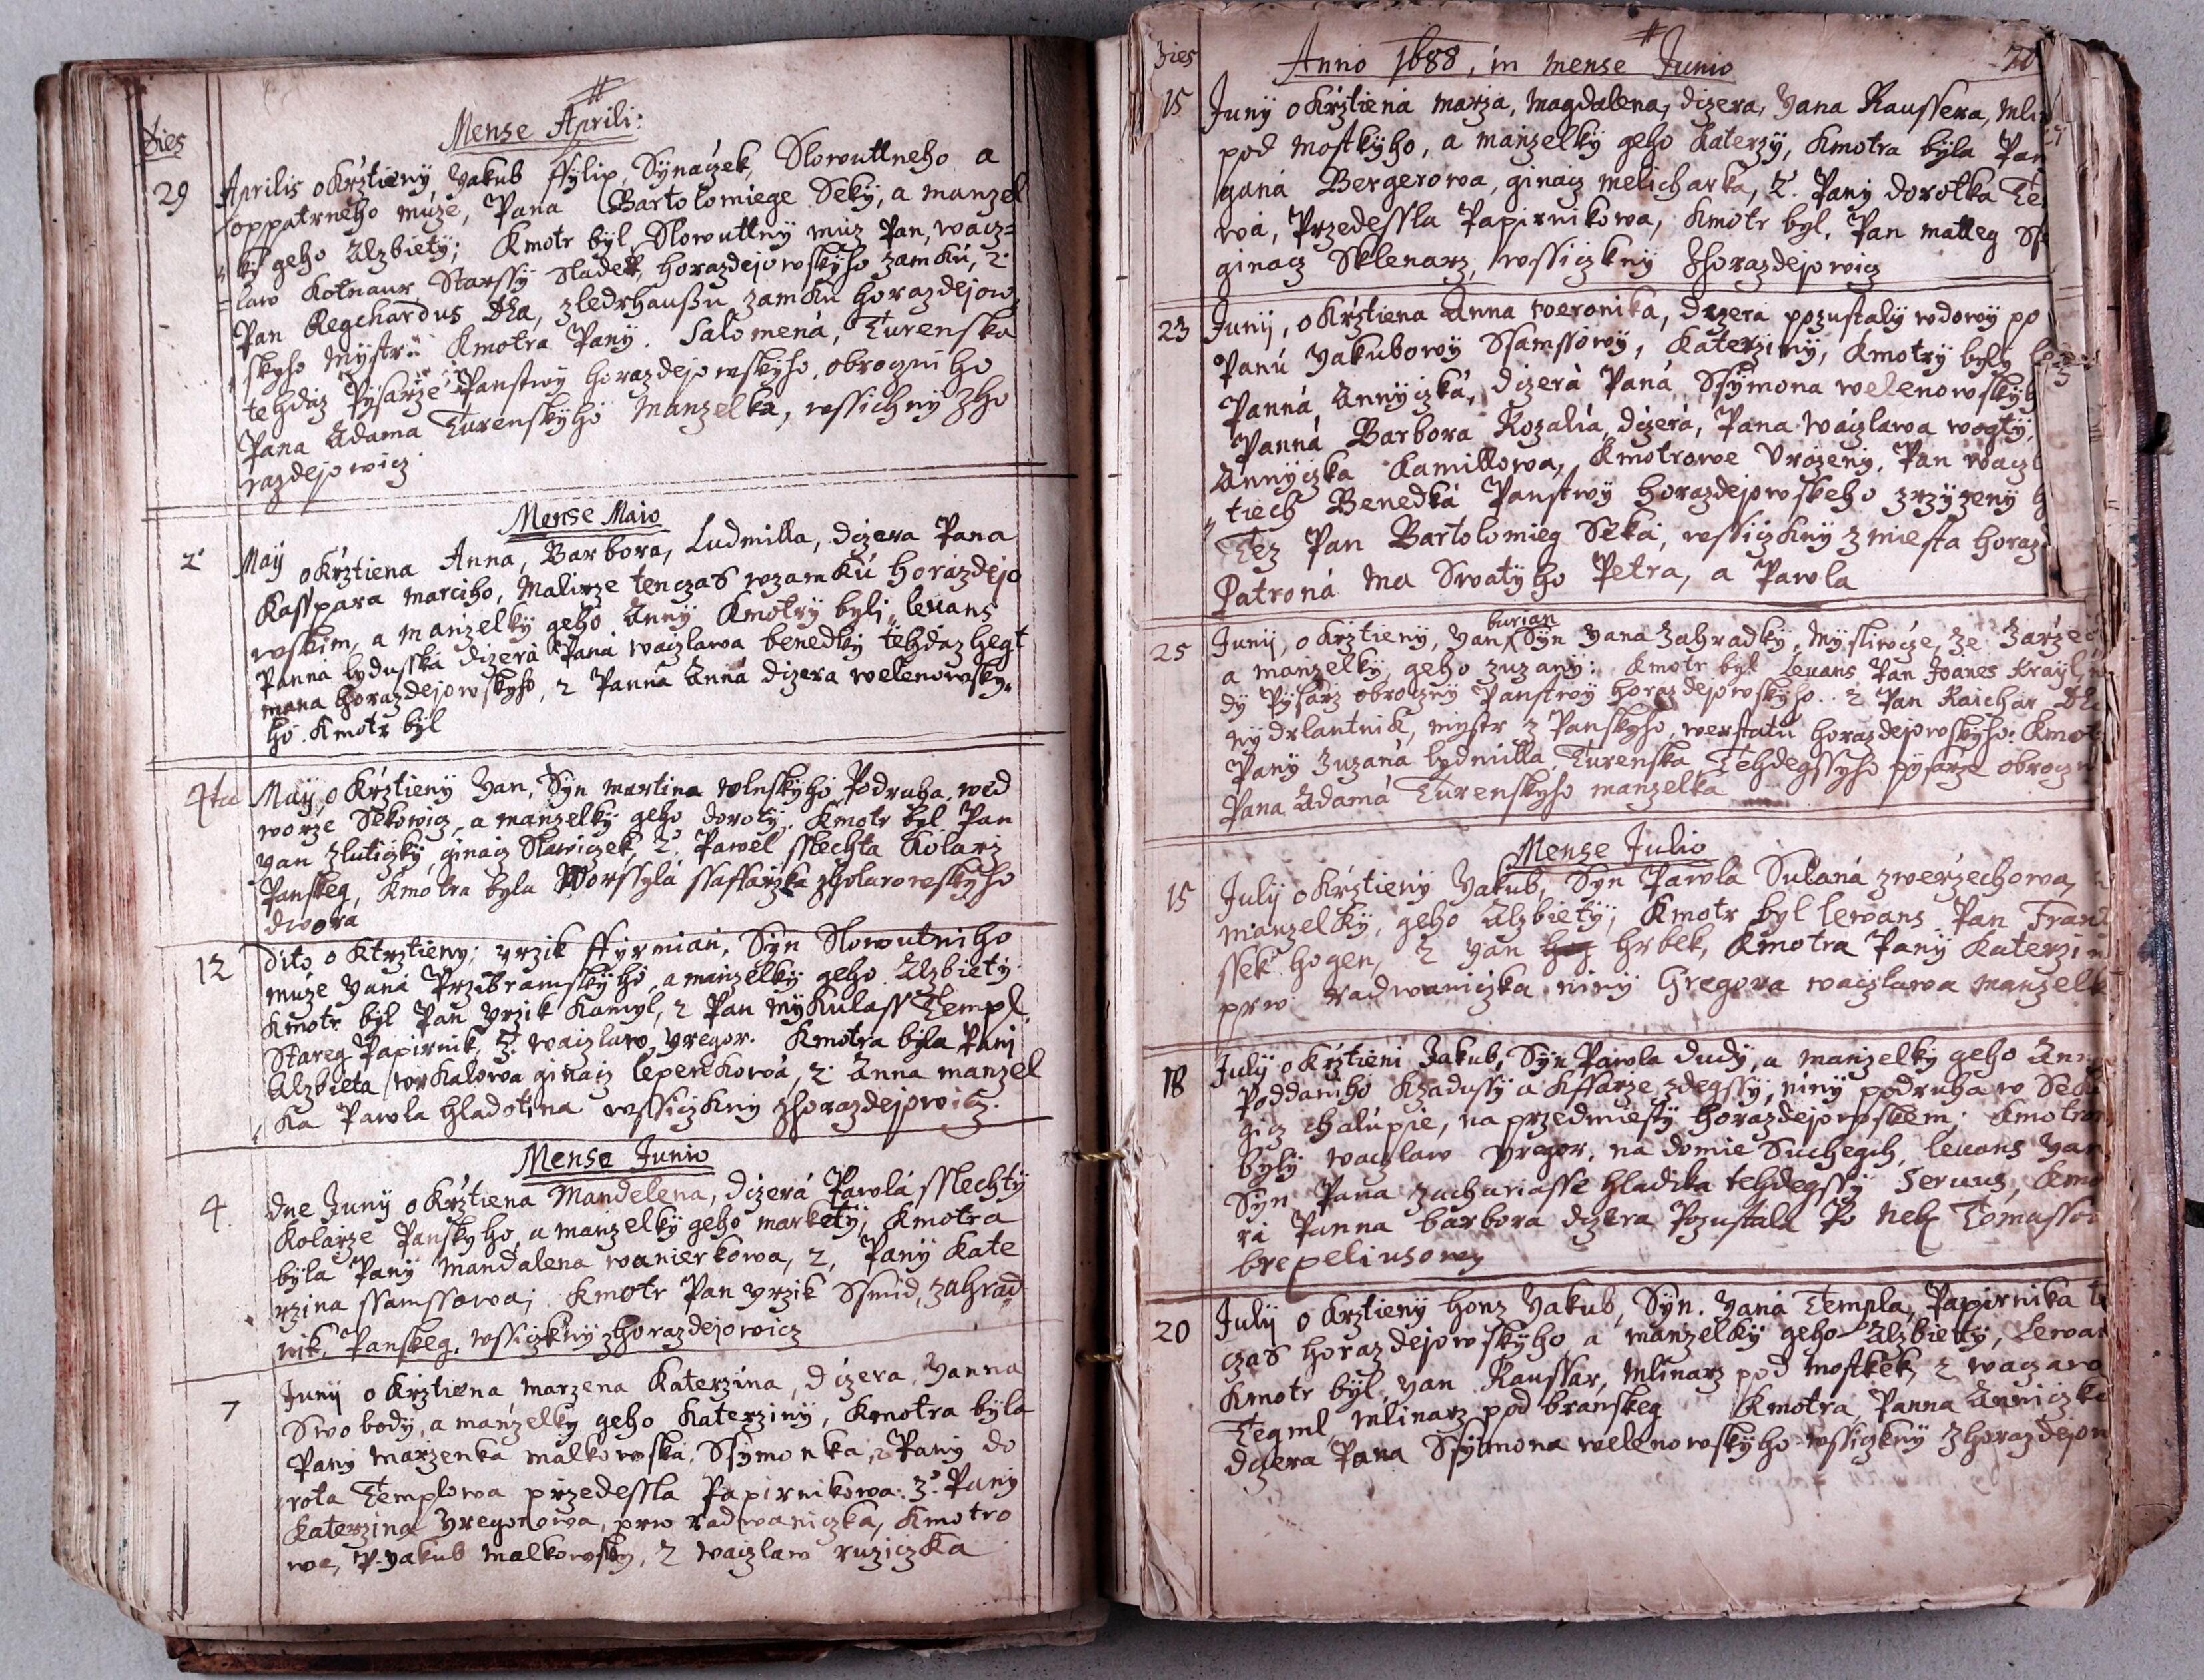 Dies
Mense Aprili:
29 Aprilis o Krztieny Yakub ffylip, Synaczek, Slowuttneho a
oppatrneho muze, Pana Bartolomiege Seky, a manzel
ky geho Alzbiety; Kmotr byl Slowuttny muz Pan, wacz=
law Kotnaur Starssy Sladek, horazdejowskyho zamku, 2.
Pan Regchardus Dla, zledrhaußu zamku horazdejow
skyho Mystr. Kmotra Pany. Salomena, Turenska
tehdaz Pysarze Panstwy horazdejowskyho, obroczniho
Pana Adama Turenskyho Manzelka, wssichny Zho
razdejowicz.
Mense Maio
2 Maij o Krztiena Anna, Barbora, Ludmilla, dczera Pana
Kasspara marciho, Malirze tenczas wzamku horazdejo
wskim, a manzelky geho Anny Kmotry byli, levans
Panna lydusska dczera Pana waczlawa benedky tehdaz hegt
mana horazdejowskyho, 2 Panna Anna dczera welenowsky=
ho. Kmotr byl
4ta Maij, o Krztieny Yan, Syn martina wlnskyho Podruha, wed
worze Sekowicz, a manzelky geho doroty. Kmotr byl Pan
Yan zluticzky, ginacz Slawiczek, 2. Pawel sslechta Kolarz
Panskeg, Kmotra byla Worssyla ssaffarzka zholarowskyho
dwora
12 dito o Ktrztieny; yrzik ffyrmian, Syn Slowutniho
muze Yana Przibramskyho, a manzelky geho Alzbiety.
Kmotr byl Pan Yrzik Kamyl, 2 Pan mykulass Templ
Stareg Papirnik, 3. waczlaw yregor. Kmotra byla Pani
Alzbieta wrkalowa ginacz lepenkowa, 2. Anna manzel
ka Pawla hladotina wssiczkny zhorazdejowicz.
Mense Junio
4. dne Juny o Krztiena Mandelena, dczera Pawla sslechty
Kolarze Panskyho, a manzelky geho markety, Kmotra
byla Pany Mandalena wanierkowa, 2, Pany Kate
rzina ssamssowa; Kmotr Pan yrzik Ssmid, zahrad
nik, Panskeg, wssiczkny zhorazdejowicz
7 Junij o Krztiena marzena Katerzina, dczera, Yanna
Swobody, a manzelky geho Katerziny, Kmotra byla
Pany marzenka malkowska, Ssymonka, 2 Pany do
rota Templowa przedessla Papirnikowa. 3. Pany
Katerzina Yregorowa, prw radwaniczka, Kmotro
we, P. yakub malkowsky, 2 waczlaw ruziczka
Dies
Anno 1688, in mense Junio
20
15 Juny o Krztiena marza, Magdalena, dczera, Yana Raussera, mli
pod mostkyho, a manzelky geho Katerzy, Kmotra byla Pan
gana Bergerowa, ginacz melicharka, 2. Pany dorotka Te
wa, Przedessla Papirnikowa, Kmotr byl. Pan matteg Sse
ginacz Sklenarz, wssiczkny Zhorazdejowicz
23 Junij, o Krztiena Anna weronika, dczera pozustaly wdowy po
Panu Yakubowy Ssamssowy, Katerziny, Kmotry byly
Panna Annyczka, dczera Pana Ssymona welenowskyh
Panna Barbora Rozalia, dczera, Pana waczlawa wogty,
Annyczka Kamillowa, Kmotrowe Urozeny, Pan waczl
tiech Benedka Panstwy horazdejowskeho zrzyzeny h
Tez Pan Bartolomieg Seka, wssiczkny z miesta horazd
Patrona ma Swatyho Petra, a Pawla
burian
25 Junij, o Krztieny, Yan Syn Yana Zahradky, Mysliwcze, ze Zarzecz
a manzelky geho zuzany: Kmotr byl levans Pan Joanes Krayl,
dy Pysarz obroczny Panstwy horazdejowskyho. 2 Pan Raichar Dla
ny drlantnik, mystr z Panskyho, werstatu horazdejowskyho: Kmot
Pany Zuzana lydmilla, Turenska Tehdegssyho pysarze obroczn
Pana Adama Turenskyho manzelka
Mense Julio
15 Julij o Krztieny Yakub, Syn Pawla Sulana zwerzechowa,
manzelky, geho Alzbiety; Kmotr byl lewans Pan Frant
ssek hogen, 2 Yan hrbek, Kmotra Pany Katerzin
prw. radwaniczka niny Gregora waczlawa manzelk
18 Julij o Krztieni Jakub, Syn Pawla dudy, a manzelky geho Ann
Poddaniho Kzadussy a Kffarze zdegssy, niny podruha w Seko
gicz chalupie, na przedmiesty horazdejowskem; Kmotrow
byly waczlaw yregor, na domie Suchegch, levans Yan
Syn Pana Zachariasse hladika tehdegssy Servus, Kmo
ra Panna barbora dczera Pozustala Po neb Tomassow
brepeliusowy
20 Julij o Krztieny honz Yakub, Syn. Yana Templa, Papirnika te
czas horazdejowskyho, a manzelky geho Alzbiety, Lewan
Kmotr byl, Yan Raussar, mlinarz pod mostkek, 2 waczaw
Tegml mlinarz pod branskeg Kmotra, Panna Anniczka
dczera Pana Ssymona welenowskyho wssiczkny Zhorazdejow